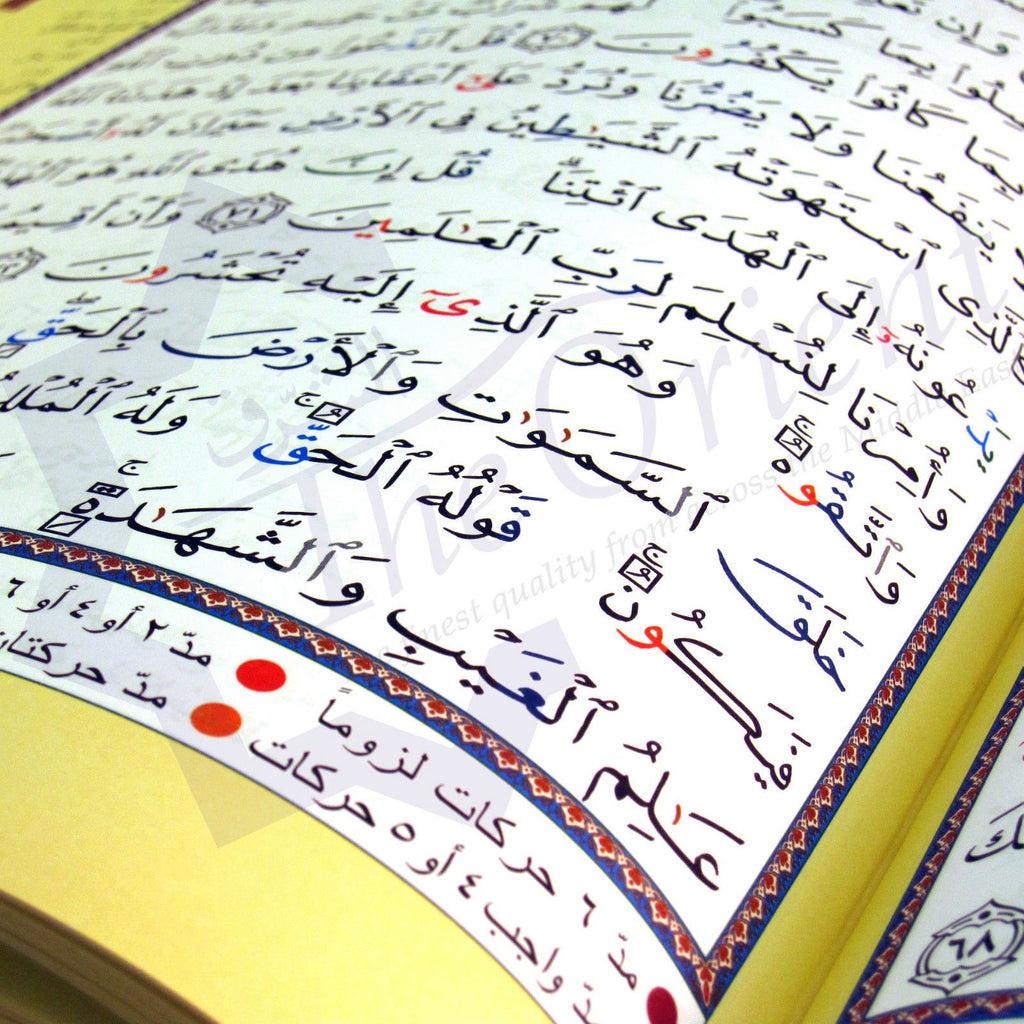 وَإِن
بِمَا كَسَبُوا۟
بِمَا كَانُوا۟ يَكْفُرُونَ ٧٠ قُلْ أَنَدْعُوا۟ مِن دُونِ
يَنفَعُنَا وَلَا يَضُرُّنَا وَنُرَدُّ عَلَىٰٓ أَعْقَابِنَا بَعْدَ إِذْ هَدَىٰنَا ٱللَّهُ
كَٱلَّذِى ٱسْتَهْوَتْهُ ٱلشَّيَـٰطِينُ فِى ٱلْأَرْضِ حَيْرَانَ
يَدْعُونَهُۥٓ إِلَى ٱلْهُدَى ٱئْتِنَا قُلْ إِنَّ هُدَى ٱللَّهِ هُوَ
وَأُمِرْنَا لِنُسْلِمَ لِرَبِّ ٱلْعَـٰلَمِينَ ٧١ وَأَنْ
وَٱتَّقُوهُ وَهُوَ ٱلَّذِىٓ إِلَيْهِ تُحْشَرُونَ
خَلَقَ ٱلسَّمَـٰوَٰتِ وَٱلْأَرْضَ بِٱلْحَقِّ
فَيَكُونُ قَوْلُهُ ٱلْحَقُّ وَلَهُ
عَـٰلِمُ ٱلْغَيْبِ وَٱلشَّهَـٰدَةِ
مدّ ٦ حركات لزوماً مدّ ٢ أو ٤ أو ٦
مدّ واجب ٤ أو ٥ حركات مدّ حركتان
٦٨
الشرق
The Orient
finest quality from across the Middle East